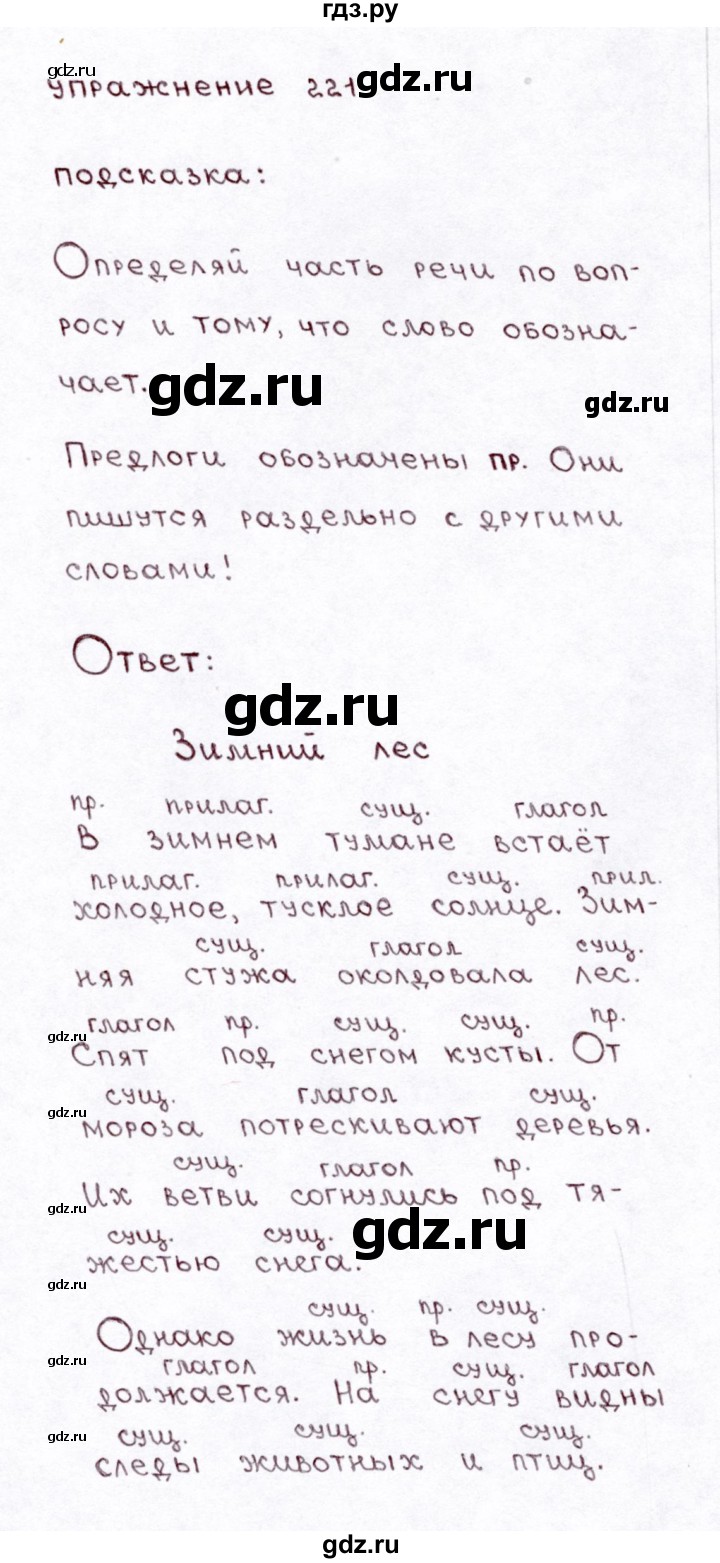 гдз.ру
gdz.ru
упражнение 221
gdz.ru
подсказка:
Определяй часть речи по воп-
росу и тому, что слово обозна-
чает.
gdz.ru
gdz.ru
Предлоги обозначены пр. Они
пишутся раздельно с другими
словами!
Ответ:
gdz.ru
Зимний лес
пр. прилаг. сущ. глагол
В зимнем тумане встаёт
прилаг. прилаг. сущ. прил.
холодное, тусклое солнце. Зим-
сущ. глагол сущ.
няя стужа околдовала лес.
глагол пр. сущ. сущ. пр.
gdz.ru
Спят под снегом кусты. От
сущ. глагол сущ.
gdz.ru
мороза потрескивают деревья.
сущ. глагол пр.
Их ветви согнулись под тя-
gdz.ru
сущ. сущ.
gdz.ru
жестью снега.
gdz.ru
сущ. пр. сущ.
Однако жизнь в лесу про-
gdz.ru
глагол пр. сущ. глагол
должается. На снегу видны
gdz.ru
сущ. сущ. сущ.
следы животных и птиц.
gdz.ru